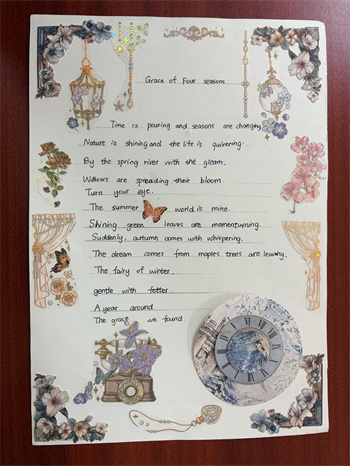 Grace of Four seasons
Time is pouring and seasons are changing
Nature is shining and the life is quivering.
By the spring river with the gleam,
Willows are spreading their bloom.
Turn your eye,
The summer world is mine.
Shining green leaves are momenturning.
Suddenly, autumn comes with whispering.
The dream comes from maples trees are leaving,
The fairy of winter,
gentle with fetter.
A year around
The grace we found.